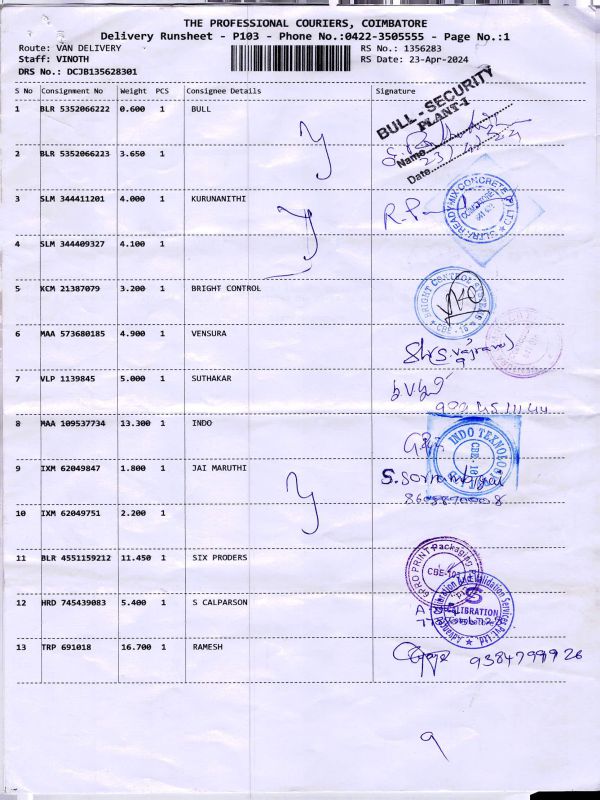 THE PROFESSIONAL COURIERS, COIMBATORE
Delivery Runsheet - P103 - Phone No.:0422-3505555 - Page No.:1
Route: VAN DELIVERY
RS No.: 1356283
Staff: VINOTH
RS Date: 23-Apr-2024
DRS No.: DCJB135628301
S No Consignment No Weight PCS Consignee Details Signature
1 BLR 5352066222 0.600 1 BULL
BULL - SECURITY
PLANT-1
Name
Date
2 BLR 5352066223 3.650 1
3 SLM 344411201 4.000 1 KURUNANITHI
4 SLM 344409327 4.100 1
5 KCM 21387079 3.200 1 BRIGHT CONTROL
BRIGHT CONTROL
CBE - 16
6 MAA 573680185 4.900 1 VENSURA
7 VLP 1139845 5.000 1 SUTHAKAR
8 MAA 109537734 13.300 1 INDO
INDO TEXNOLOGI
CBE-18
9 IXM 62049847 1.800 1 JAI MARUTHI
10 IXM 62049751 2.200 1
11 BLR 4551159212 11.450 1 SIX PRODERS
PRINT Packaging
12 HRD 745439083 5.400 1 S CALPARSON
CALIBRATION
13 TRP 691018 16.700 1 RAMESH
9